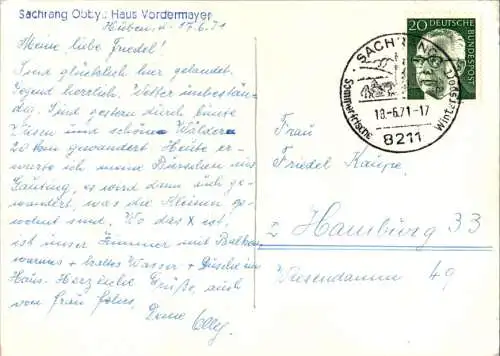 Sachrang Obby.: Haus Vordermayer
Huben, d. 17.6.71
Meine liebe Friedel!
Sind glücklich hier gelandet.
Gegend herrlich. Wetter unbestän-
dig. Sind gestern durch bunte
Wiesen und schöne Wälder
20 km gewandert. Heute er-
warte ich meine Bürschen aus
Gauting, es wird dann auch ge-
wandert, was die Kleinen ge-
wöhnt sind. Wo das x ist,
ist unser Zimmer mit Balkon,
warmes + kaltes Wasser + Dusche im
Haus. Herzliche Grüße, auch
von Frau
Deine Elly.
20
DEUTSCHE
BUNDESPOST
SACHRANG
18.-6.71-17
Sommerfrische
Wintersport
8211
Frau
Friedel Kaupe,
2 Hamburg 33
Wiesendamm 49